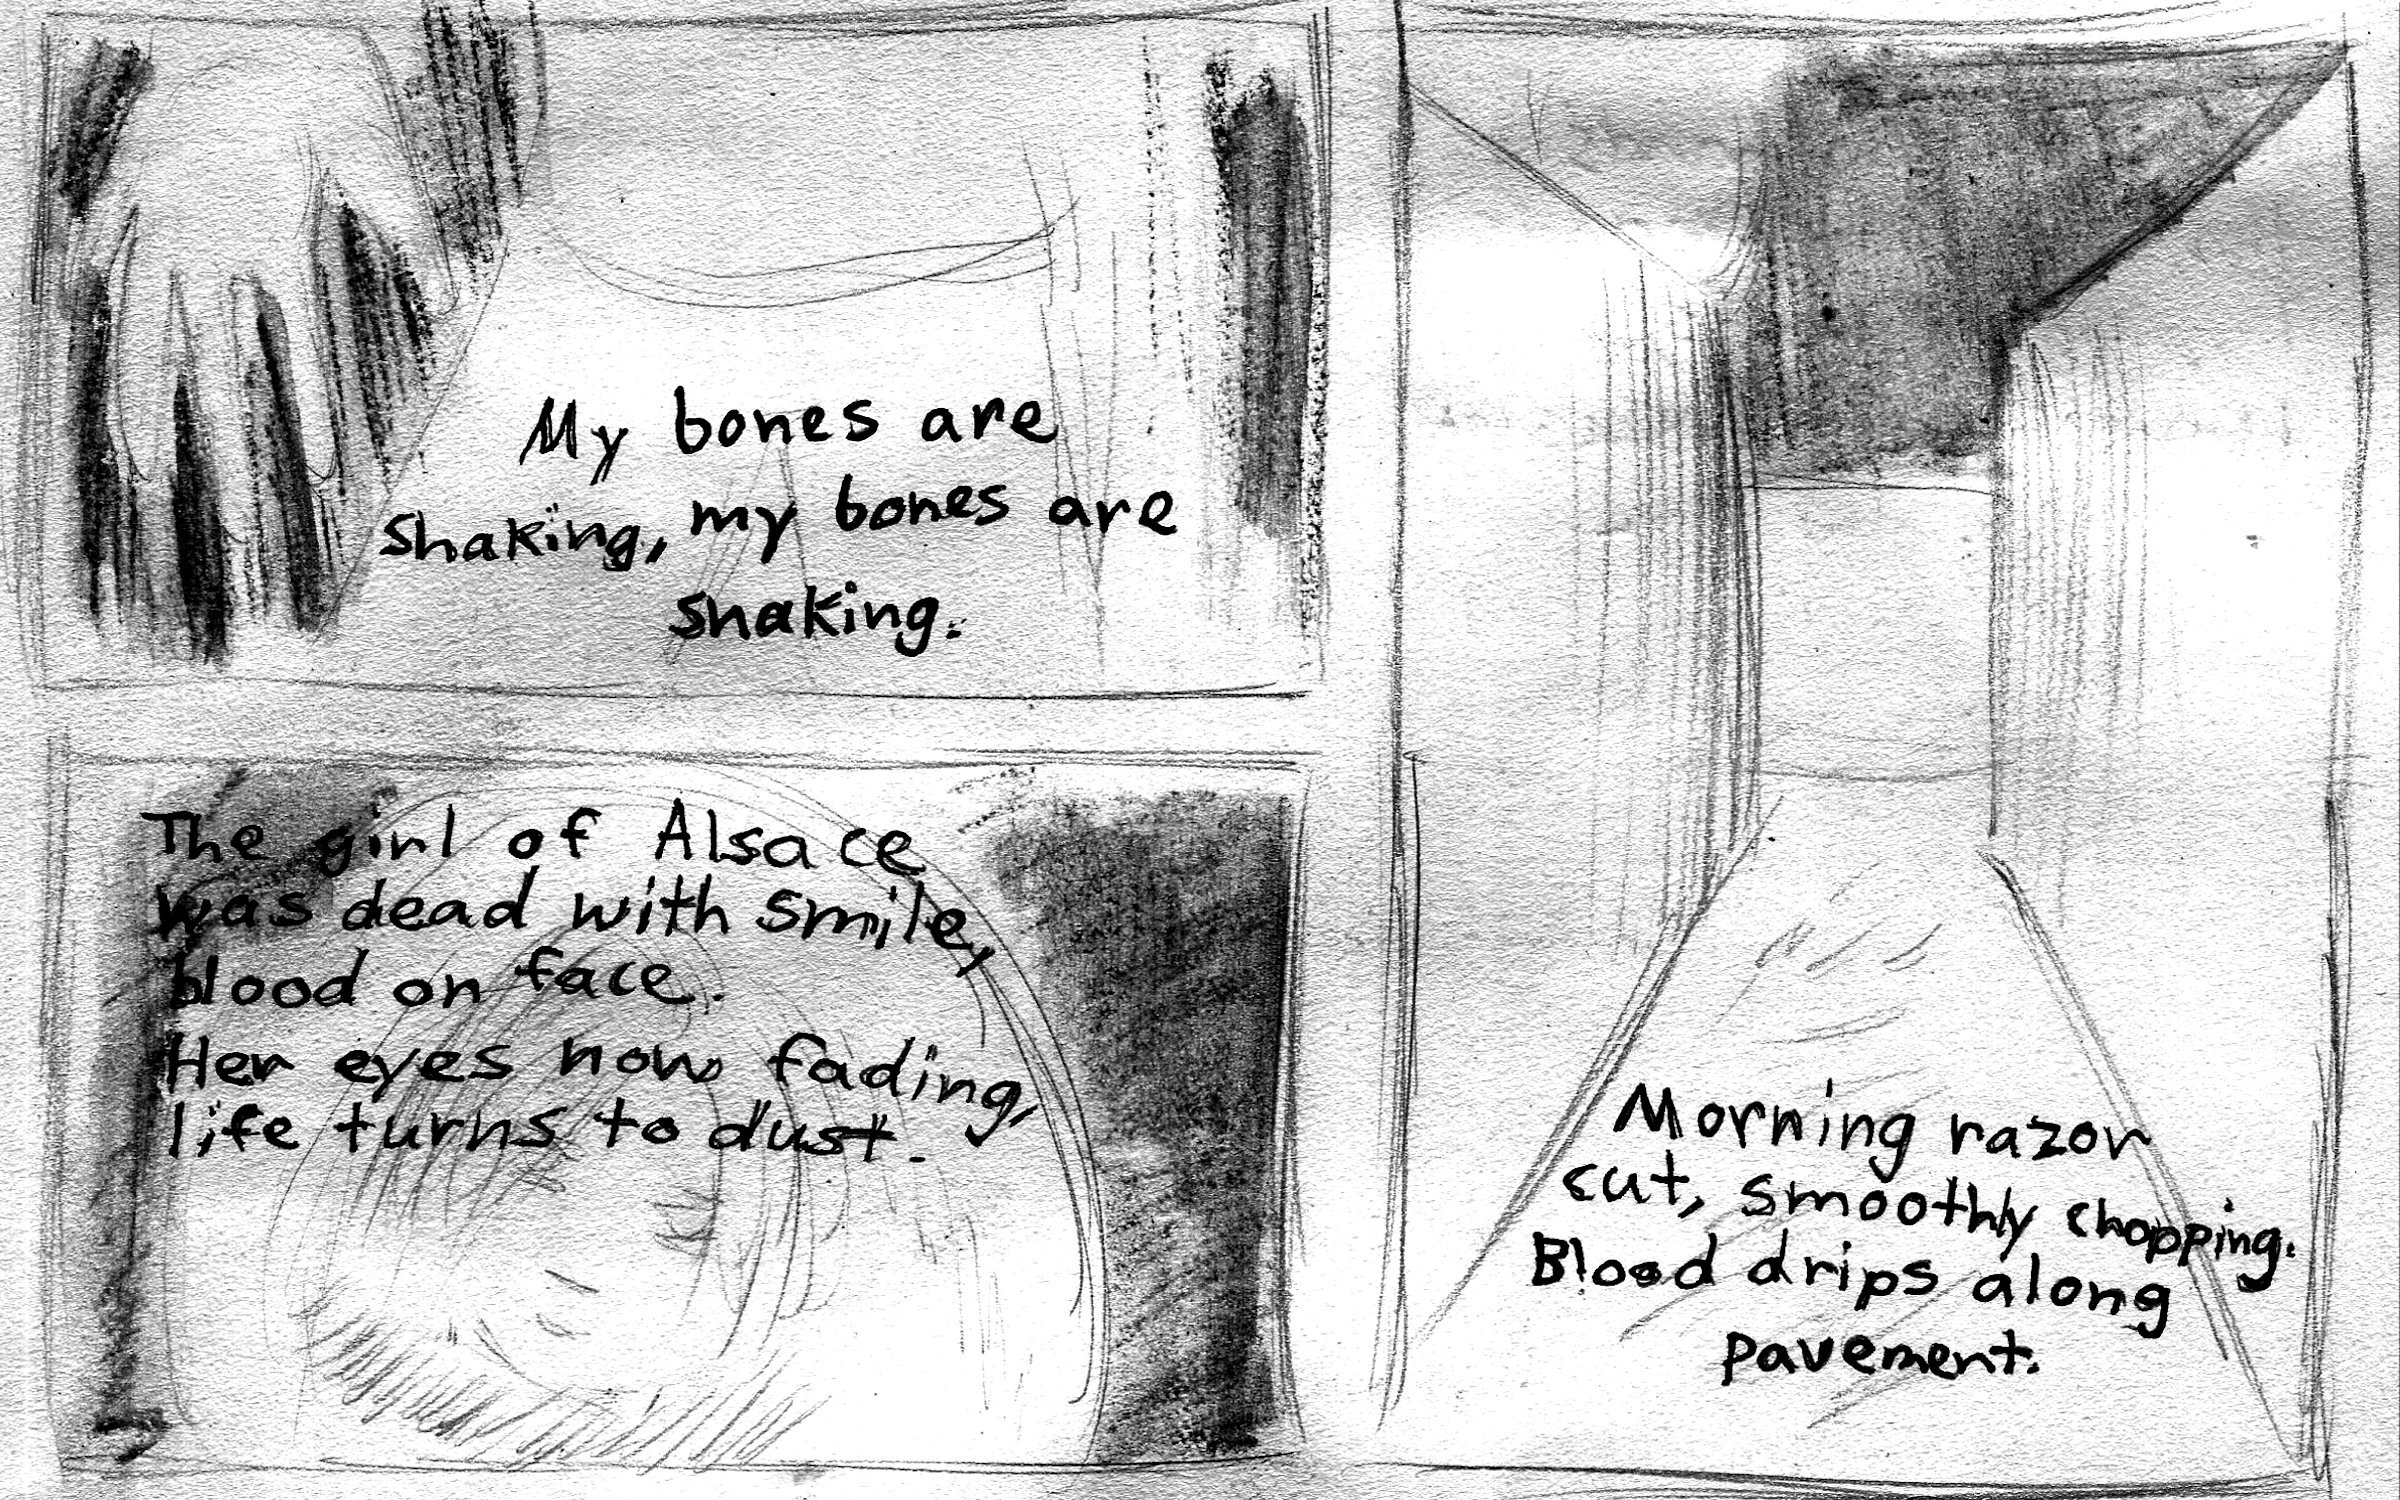 My bones are
shaking, my bones are
shaking.
The girl of Alsace
was dead with smile,
blood on face.
Her eyes now fading,
life turns to dust.
Morning razor
cut, smoothly chopping.
Blood drips along
pavement.